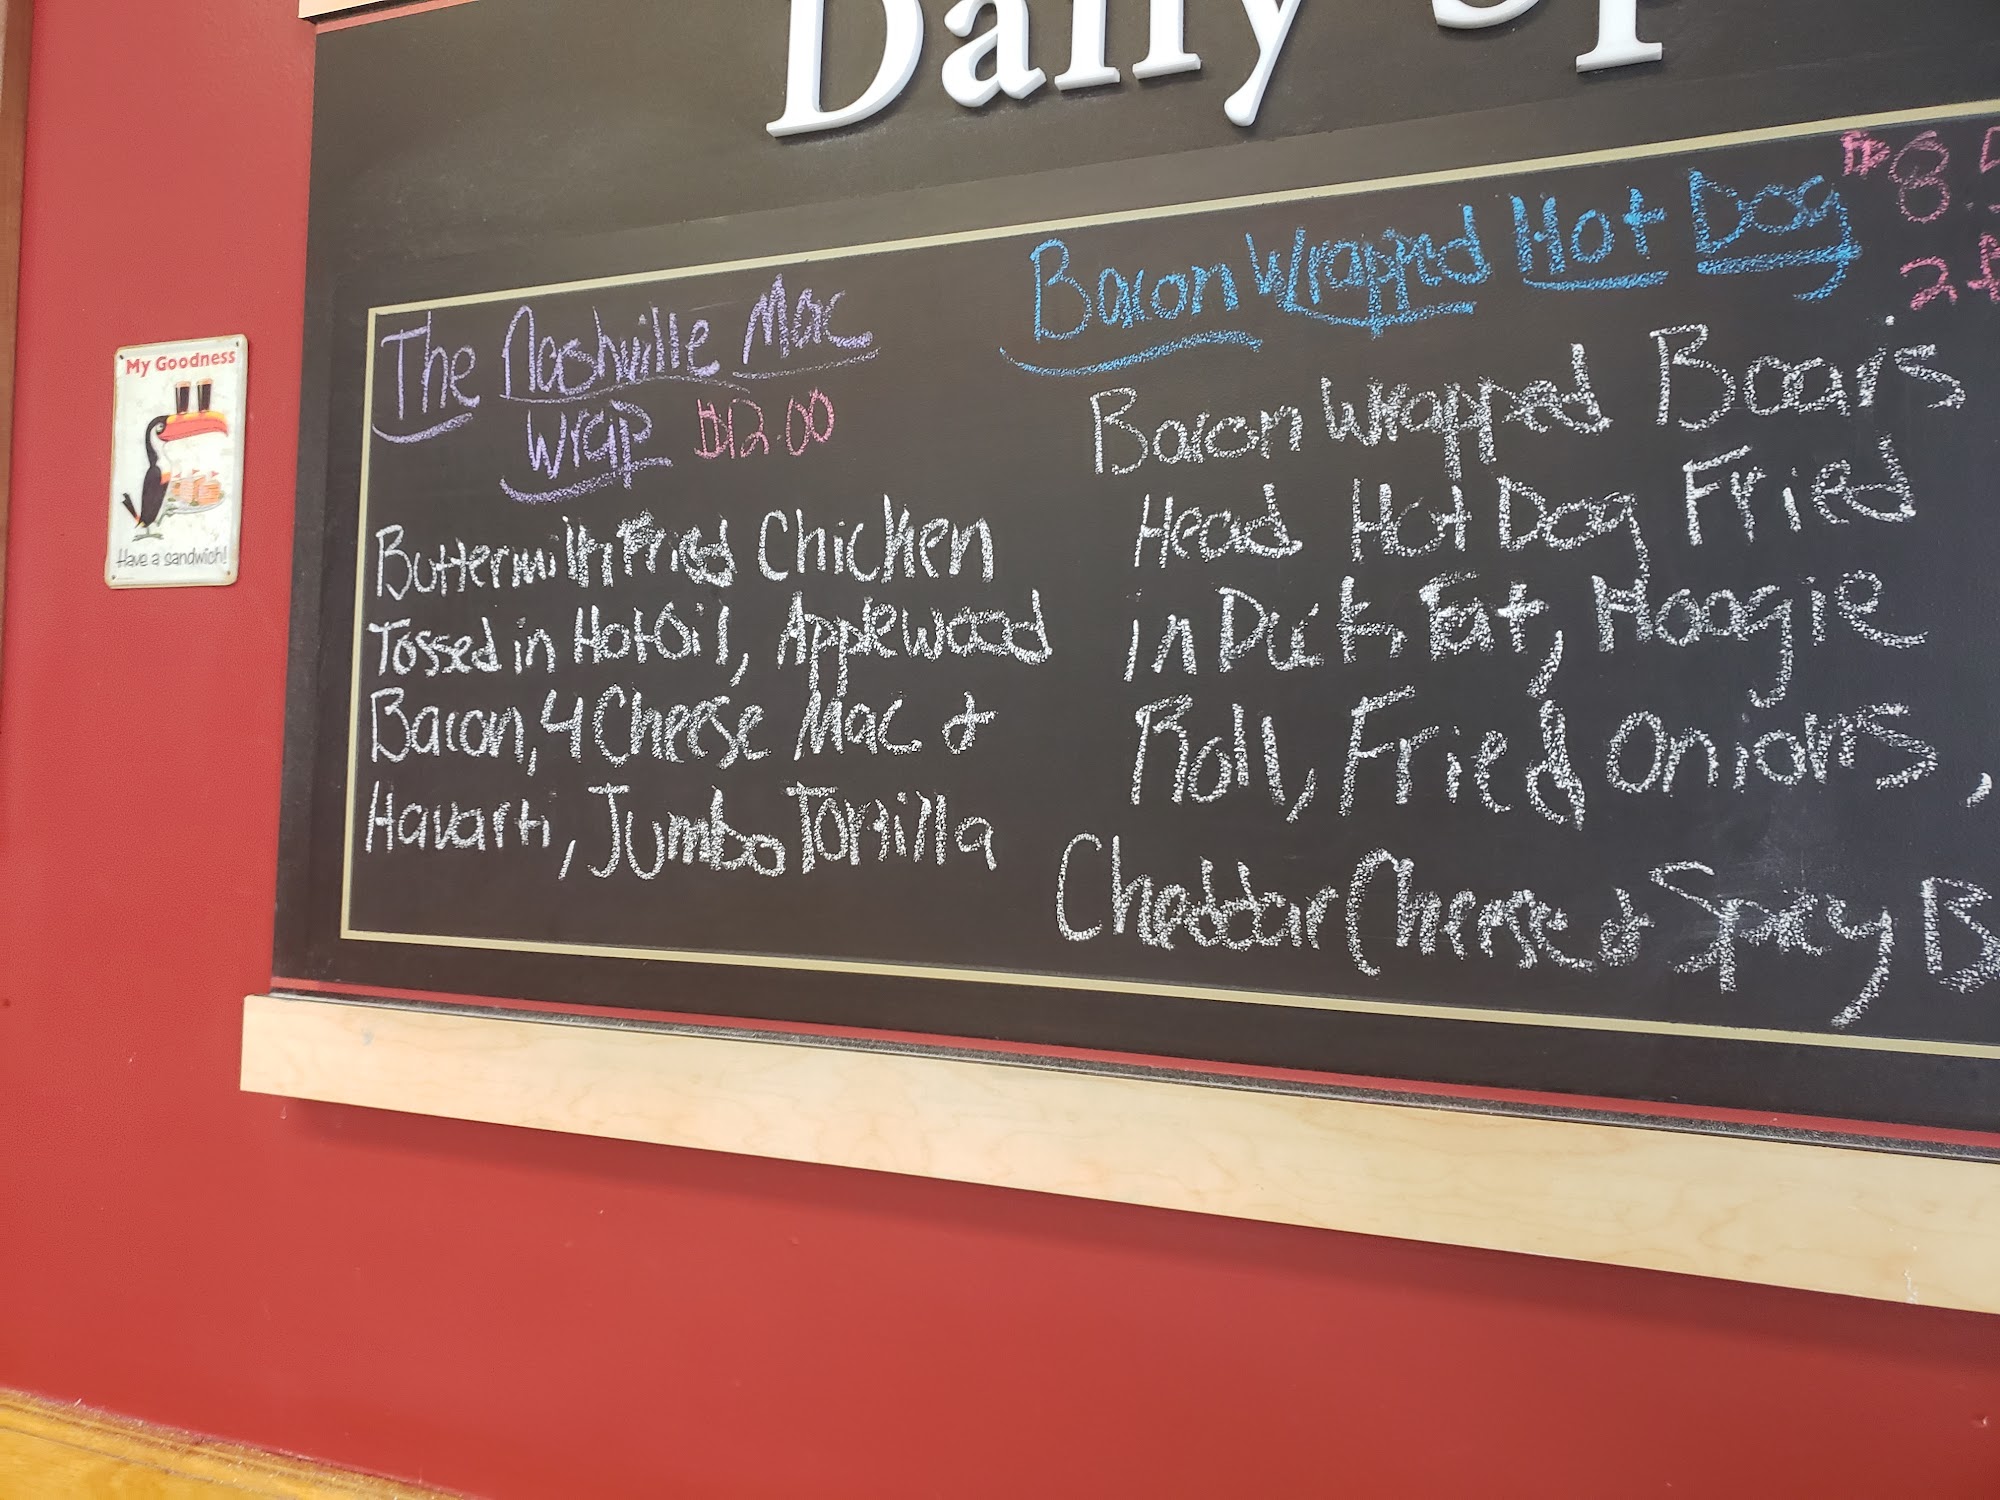 Daily Sp
The Nashville Mac
Wrap $12.00
Buttermilk Fried Chicken
Tossed in Hot Oil, Applewood
Bacon, 4 Cheese Mac &
Havarti, Jumbo Tortilla
Bacon Wrapped Hot Dog
$8.5
Bacon Wrapped Boars
Head Hot Dog Fried
in Duck Fat, Hoagie
Roll, Fried Onions,
Cheddar Cheese & Spicy B
My Goodness
Have a sandwich!